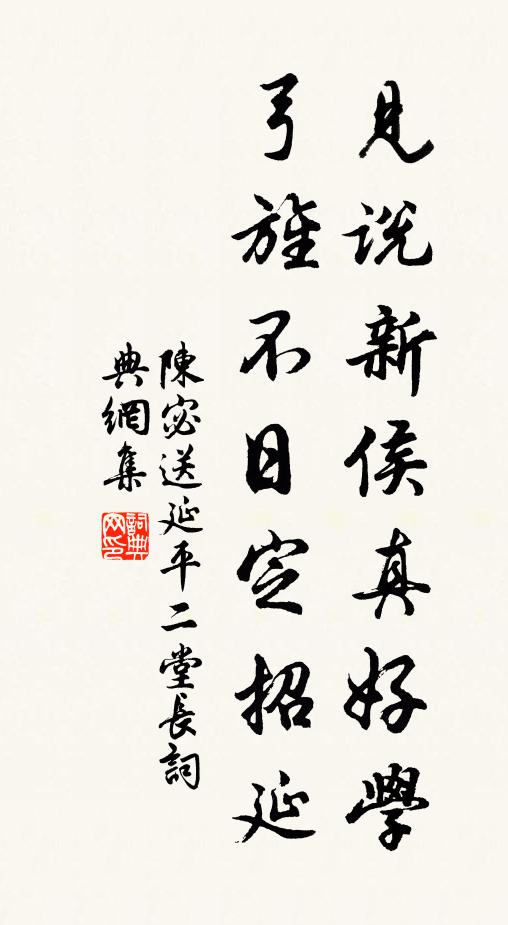 見說新侯真好學
弓旌不日定招延
陳宓送延平二堂長詞
典網集
詞典
網印